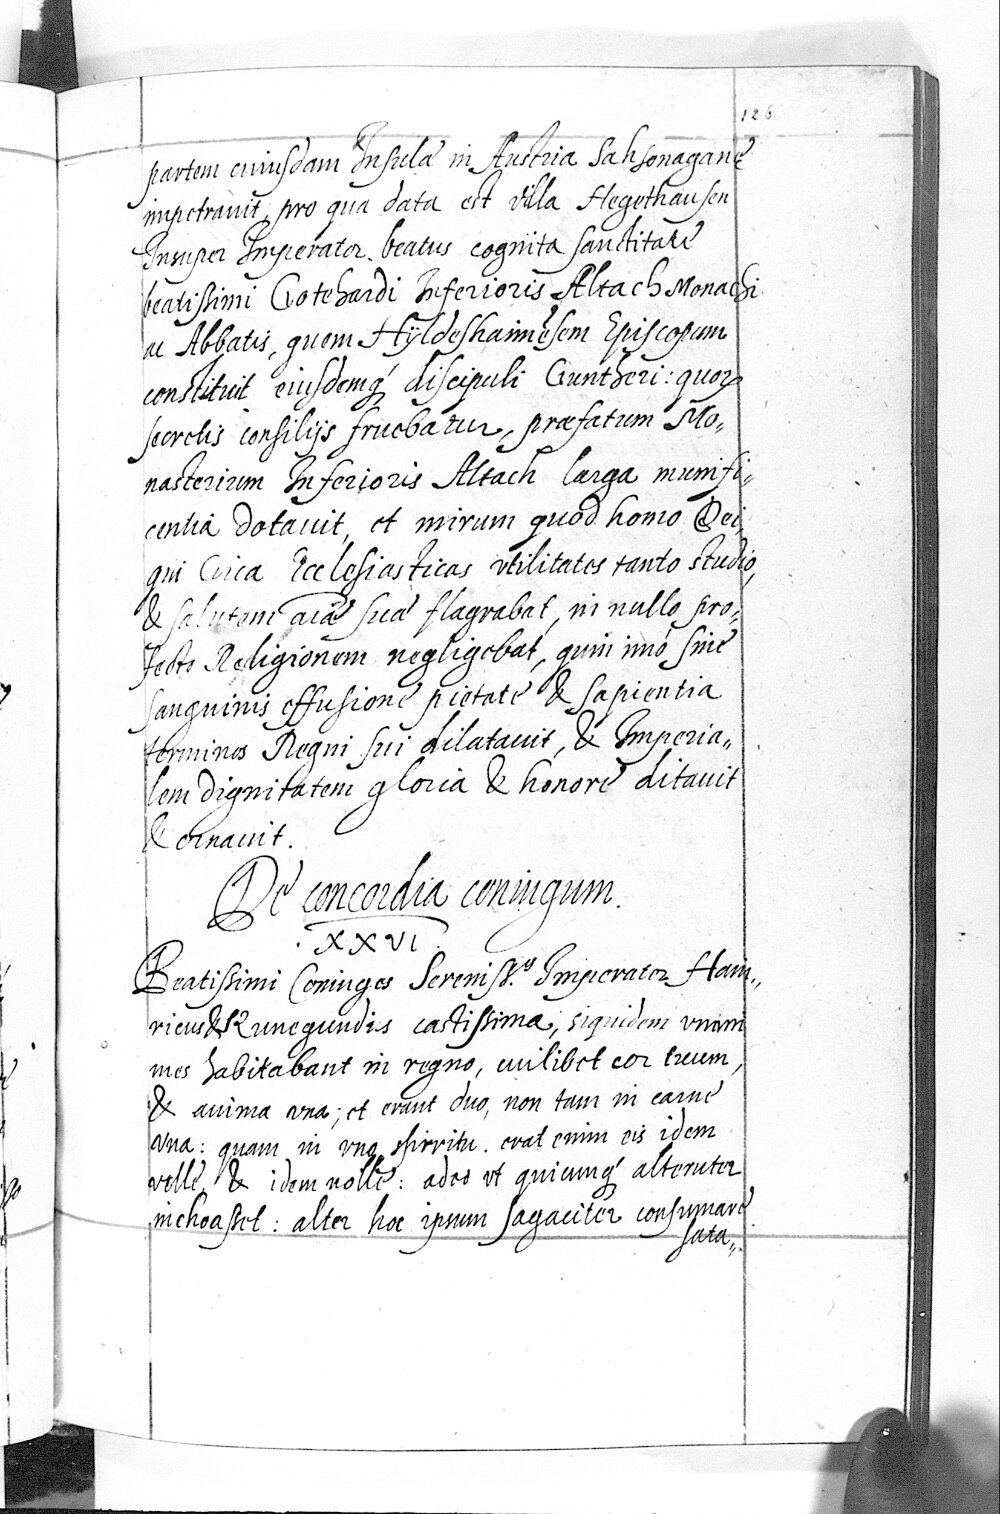 126
partem cuiusdam Insulæ in Austria Sahsonaganc
impetrauit, pro qua data est villa Hegethausen
Insuper Imperator beatus cognita sanctitate
beatissimi Gotehardi Inferioris Altach Monachi
ac Abbatis, quem Hÿldeshaimēsem Episcopum
constituit eiusdemq́ discipuli Guntheri: quorꝫ
secretis consilijs fruebatur, præfatum Mo„
nasterium Inferioris Altach larga munifi„
centia dotauit, et mirum quod homo Dei,
qui Circa Ecclesiasticas vtilitates tanto studio,
& salutem aiæ suæ flagrabat, in nullo pro„
fecto Religionem negligebat, quin imó sine
sanguinis effusione pietate & sapientia
terminos Regni sui dilatauit, & Imperia„
lem dignitatem gloria & honore ditauit
& ornauit.
De concordia coniugum.
. XXVI .
Beatissimi Coniuges Sereniss.us Imperator Hain„
ricus & Kunegundis castissima, siquidem vnani
mes habitabant in regno, cuilibet cor tuum,
& anima vna; et erant duo, non tam in carne
vna: quam in vno spirritu. erat enim eis idem
velle, & idem nolle: adeo vt quicumq́ alteruter
inchoasset: alter hoc ipsum sagaciter consumare
sata„